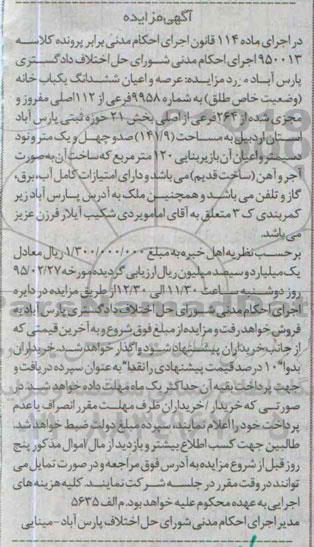 آگهی مزایده
در اجرای ماده ۱۱۴ قانون اجرای احکام مدنی برابر پرونده کلاسه
۹۵۰۰۱۳ اجرای احکام مدنی شورای حل اختلاف دادگستری
پارس آباد مورد مزایده: عرصه و اعیان ششدانگ یکباب خانه
(وضعیت خاص طلق) به شماره ۹۹۵۸فرعی از ۱۱۲ اصلی مفروز و
مجزی شده از ۲۶۴فرعی از اصلی بخش ۲۱ حوزه ثبتی پارس آباد
استان اردبیل به مساحت (۱۴۱/۹) صد و چهل و یک متر و نود
دسیمتر و اعیان آن باز زیربنایی ۱۲۰ متر مربع که ساخت آن به صورت
آجر و آهن (ساخت قدیم) می باشد و دارای امتیازات کامل آب، برق،
گاز و تلفن می باشد و همچنین ملک به آدرس پارسآباد زیر
کمربندی ک ۳ متعلق به آقای امامویردی شکیب آیلار فرزن عزیز
می باشد.
بر حسب نظریه اهل خبره به مبلغ ۱/۳۰۰/۰۰۰/۰۰۰ ریال معادل
یک میلیارد و سیصد میلیون ریال ارزیابی گردیده مورخه ۹۵/۰۲/۲۷
روز دوشنبه ساعت ۱۱/۳۰ الی ۱۲/۳۰ از طریق مزایده در دایره
اجرای احکام مدنی شورای حل اختلاف دادگستری پارس آباد به
فروش خواهد رفت و مزایده از مبلغ فوق شروع و به آخرین قیمتی که
از جانب خریداران پیشنهاد شود واگذار خواهد شد. خریداران
بدوا" ۱۰ درصد قیمت پیشنهادی را نقدا" به عنوان سپرده دریافت و
جهت پرداخت بقیه آن حداکثر یک ماه مهلت داده خواهد شد. در
صورتی که خریدار /خریداران ظرف مهلت مقرر انصراف یا عدم
پرداخت خود را اعلام نمایند، سپرده مبلغ دولت ضبط خواهد شد.
طالبین جهت کسب اطلاع بیشتر و بازدید از مال اموال مذکور پنج
روز قبل از شروع مزایده به آدرس فوق مراجعه و در صورت تمایل می
توانند در وقت مقرر در جلسه شرکت نمایند. کلیه هزینه های
اجرایی به عهده محکوم علیه خواهد بود. م الف ۵۶۳۵
مدیر اجرای احکام مدنی شورای حل اختلاف پارس آباد-مینایی